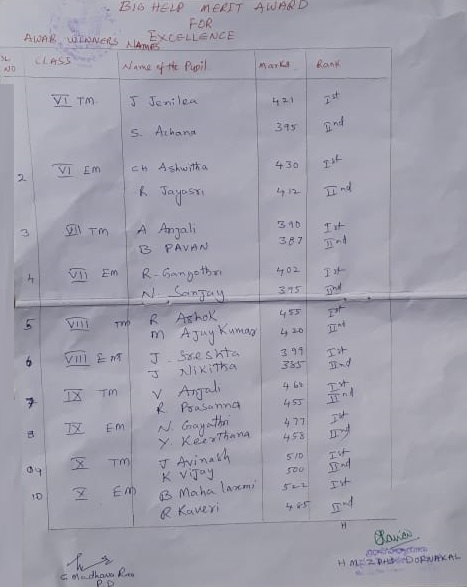 BIG HELP MERIT AWARD
FOR
EXCELLENCE
AWAR WINNERS NAMES
SL NO CLASS Name of the Pupil Marks Rank
VI TM J Jenilea 421 Ist
S. Archana 395 IInd
2 VI EM CH Ashwitha 430 Ist
R Jayassri 412 IInd
3 VII TM A Anjali 390 Ist
B PAVAN 387 IInd
4 VII EM R. Gangothri 402 Ist
N. Sanjay 395 IInd
5 VIII TM R Ashok 455 Ist
M Ajay Kumar 420 IInd
6 VIII EM J. Sreshta 399 Ist
J Nikitha 385 IInd
7 IX TM V Anjali 460 Ist
R Prasanna 455 IInd
8 IX EM N Gayathri 477 Ist
Y Keerthana 458 IInd
09 X TM J Avinash 510 Ist
K Vijay 500 IInd
10 X EM B Maha laxmi 522 Ist
R Kaveri 485 IInd
H
C Madhava Rao
P.D
H M Z P H S DORNAKAL